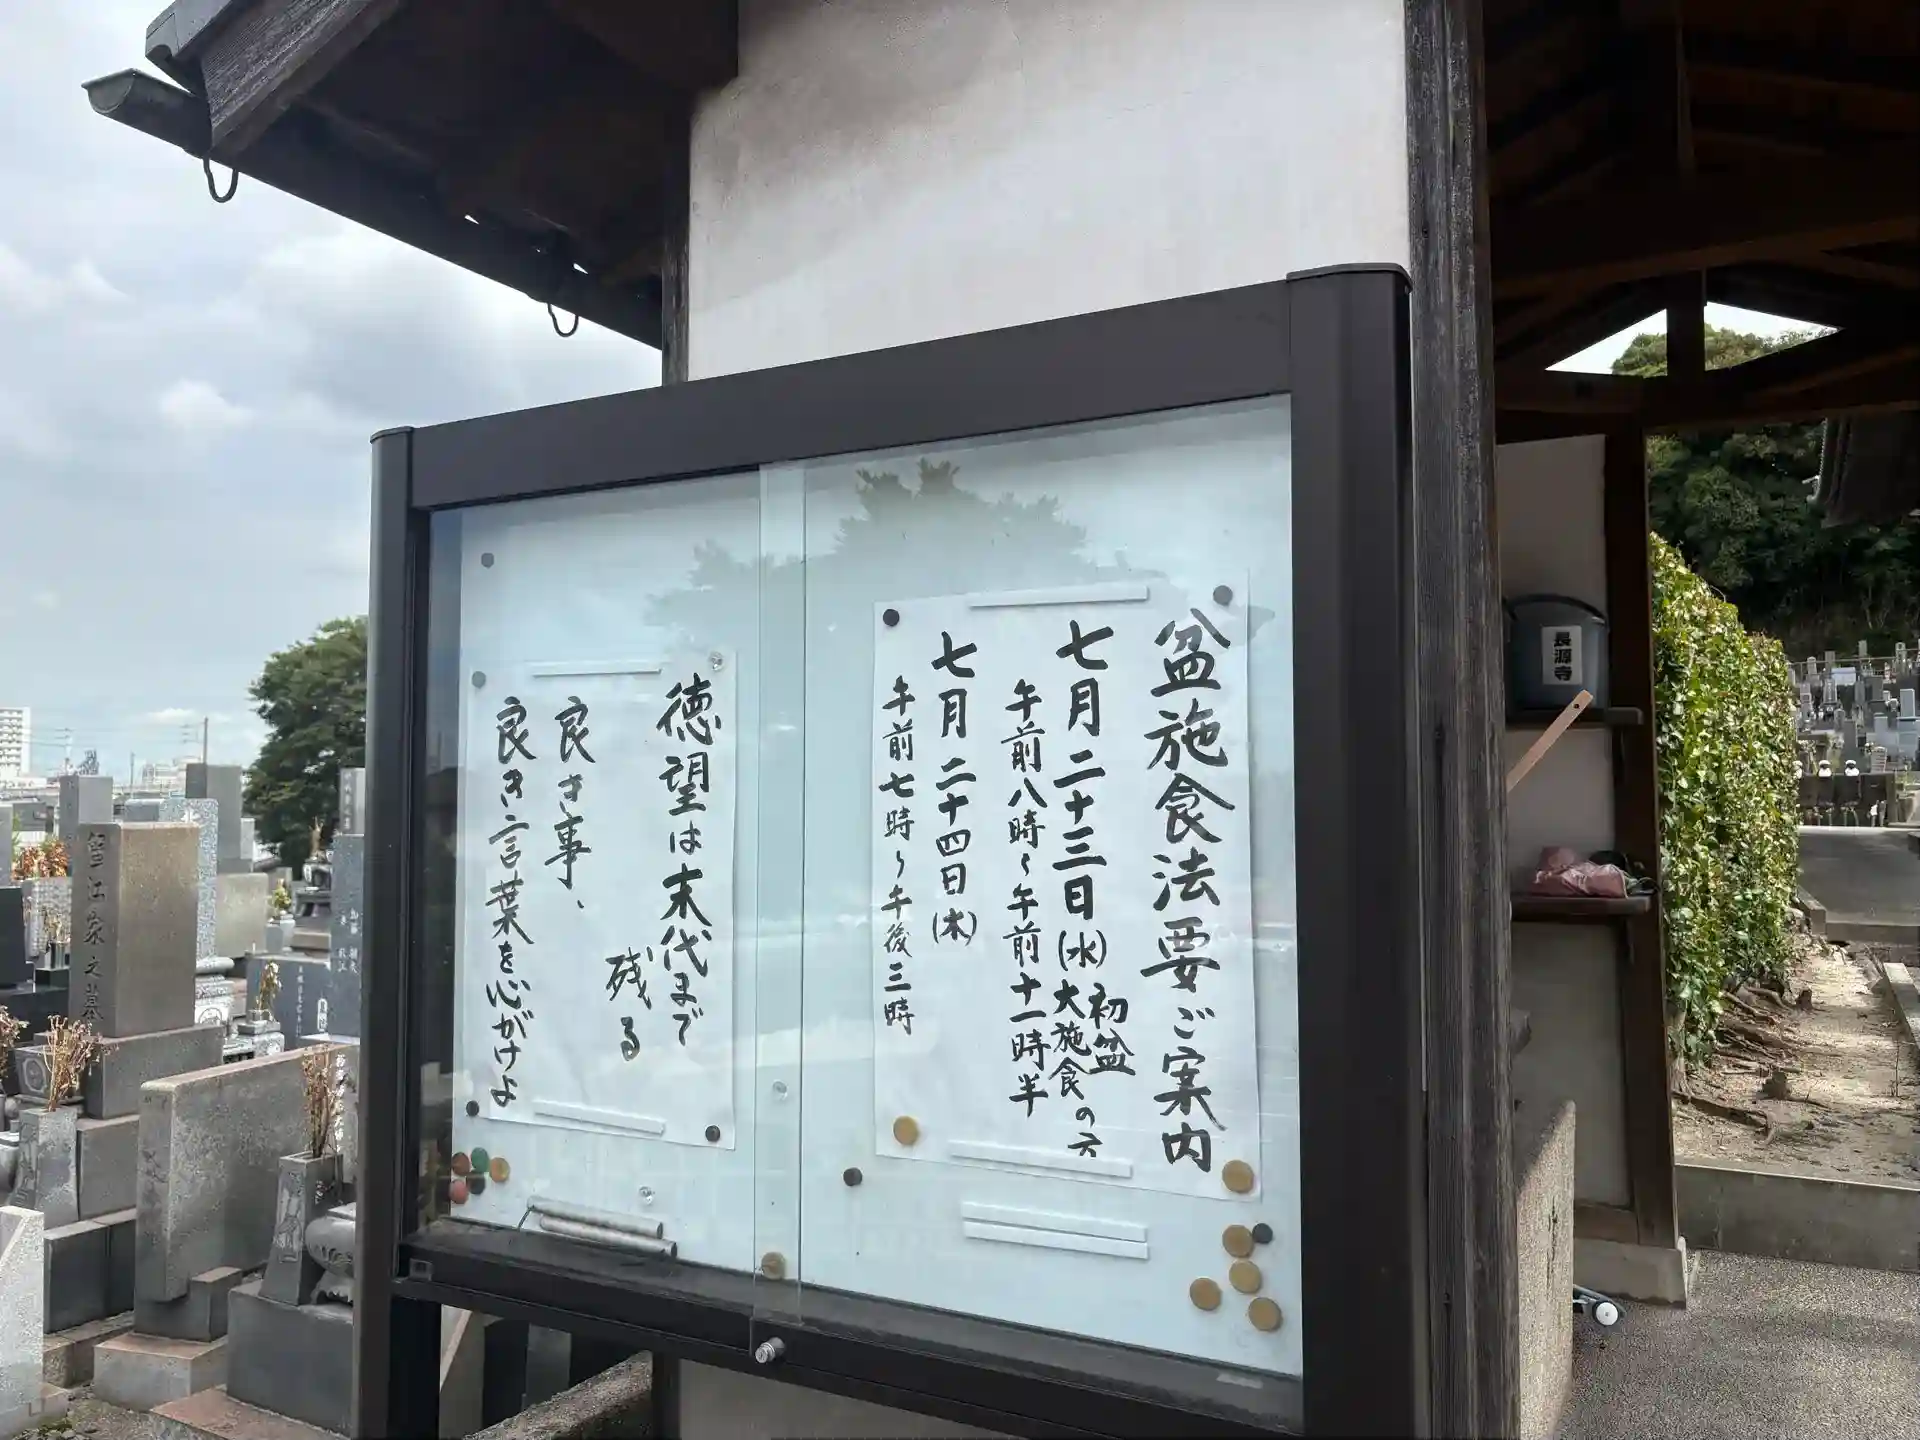 盆施食法要ご案内
七月二十三日(水)
初盆
大施食の方
午前八時~午前十一時半
七月二十四日(木)
午前七時~午後三時
徳望は末代まで
残る
良き事、
良き言葉を心がけよ
長源寺
江家之墓